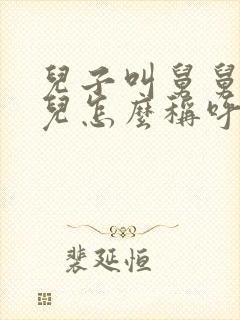 兒子叫舅舅
兒怎麼稱呼
裴延恒